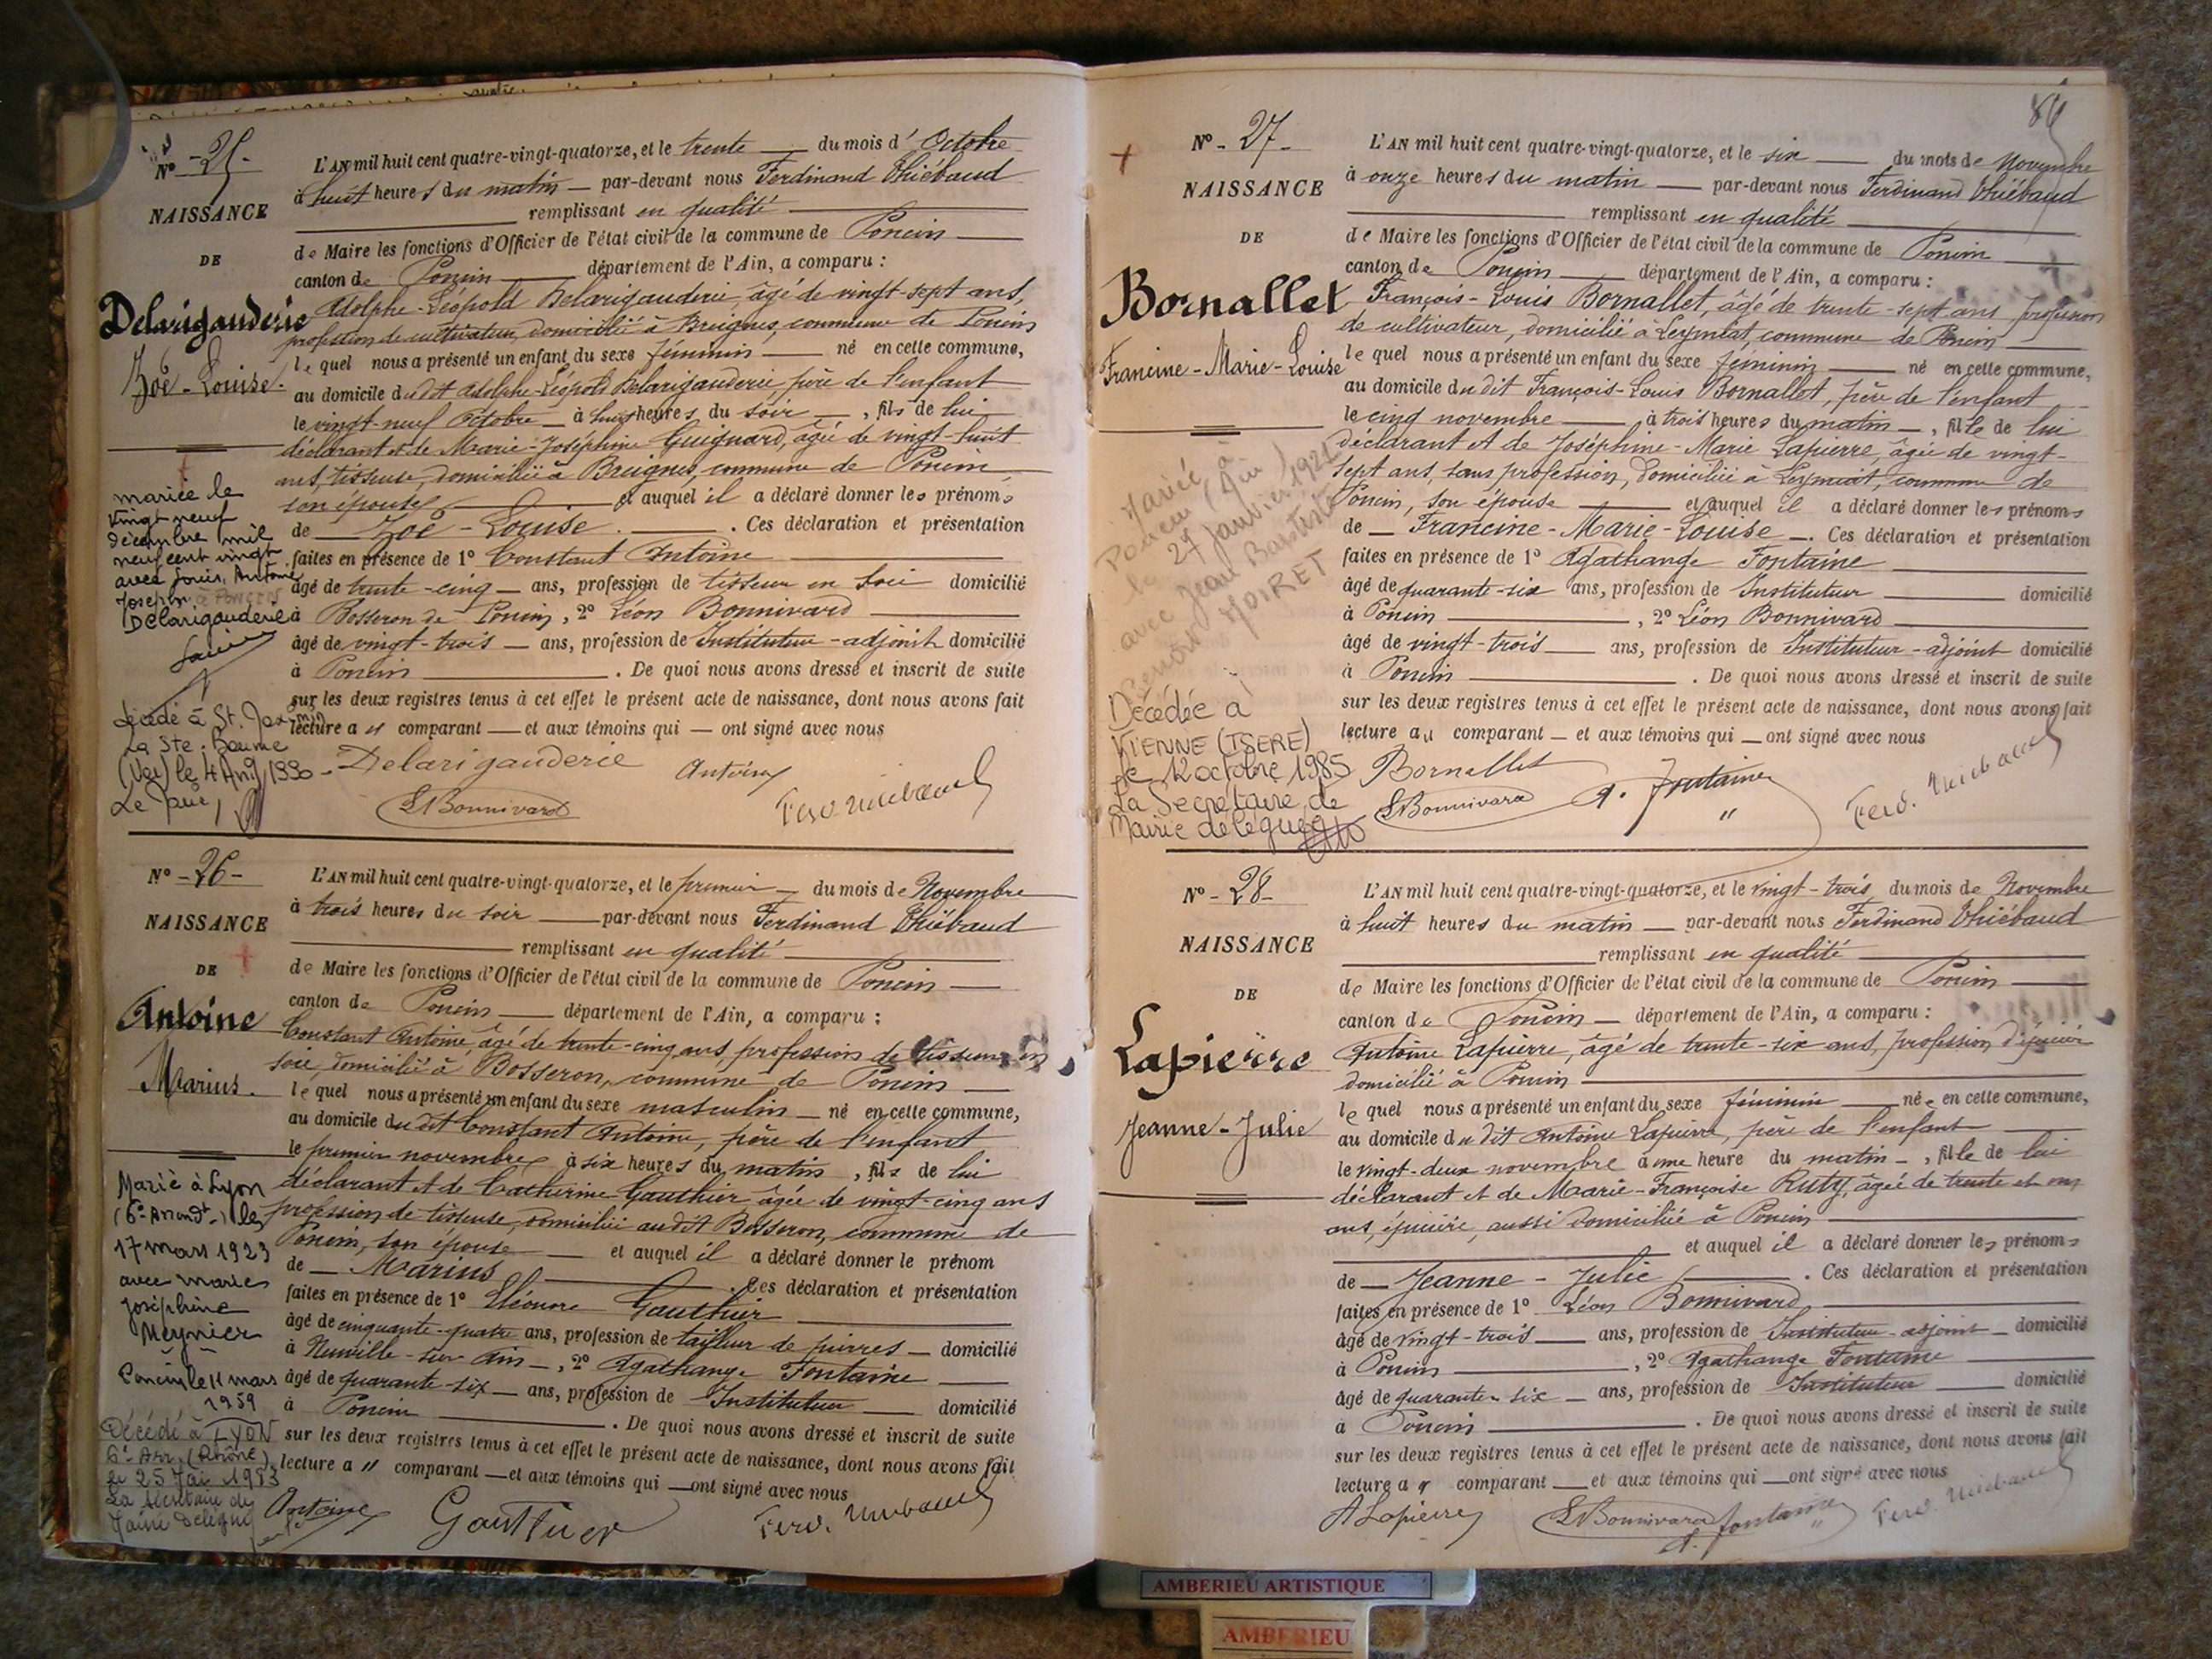 N° - 25 -
NAISSANCE
DE
Delarigauderie
Zoé - Louise.
L'AN mil huit cent quatre-vingt-quatorze, et le trente du mois d' Octobre
à huit heures du matin par-devant nous Ferdinand Thiébaud
remplissant en qualité
de Maire les fonctions d'Officier de l'état civil de la commune de Poncin
canton de Poncin département de l'Ain, a comparu :
Adolphe-Léopold Delarigauderie, âgé de vingt-sept ans,
profession de cultivateur, domicilié à Breignes, commune de Poncin
lequel nous a présenté un enfant du sexe féminin né en cette commune,
au domicile du dit Adolphe-Léopold Delarigauderie père de l'enfant
le vingt-neuf Octobre à huit heures du soir, fils de lui
déclarant et de Marie-Joséphine Guignard, âgée de vingt-huit
ans, tisseuse, domiciliée à Breignes, commune de Poncin
son épouse et auquel il a déclaré donner les prénoms
de Zoé - Louise. Ces déclaration et présentation
faites en présence de 1° Constant Antoine
âgé de trente-cinq ans, profession de tisseur en soie domicilié
à Bosseron de Poncin, 2° Léon Bonnivard
âgé de vingt-trois ans, profession de Instituteur-adjoint domicilié
à Poncin. De quoi nous avons dressé et inscrit de suite
sur les deux registres tenus à cet effet le présent acte de naissance, dont nous avons fait
lecture au comparant et aux témoins qui ont signé avec nous
Delarigauderie Antoine
LBonnivard Ferd. Thiebaud
mariée le
vingt neuf
décembre mil
neuf cent vingt
avec Louis, Antoine
Joseph
Delarigauderie
décédé à St. Maximin
La Ste. Baume
(Var) le 4 Avril 1990
N° - 26 -
NAISSANCE
DE
Antoine
Marius.
L'AN mil huit cent quatre-vingt-quatorze, et le premier du mois de Novembre
à trois heures du soir par-devant nous Ferdinand Thiébaud
remplissant en qualité
de Maire les fonctions d'Officier de l'état civil de la commune de Poncin
canton de Poncin département de l'Ain, a comparu :
Constant Antoine âgé de trente-cinq ans, profession de tisseur en
soie, domicilié à Bosseron, commune de Poncin
lequel nous a présenté un enfant du sexe masculin né en cette commune,
au domicile du dit Constant Antoine, père de l'enfant
le premier novembre à six heures du matin, fils de lui
déclarant et de Catherine Gauthier âgée de vingt-cinq ans
profession de tisseuse, domiciliée au dit Bosseron, commune de
Poncin, son épouse et auquel il a déclaré donner le prénom
de Marius. Ces déclaration et présentation
faites en présence de 1° Eléonore Gauthier
âgé de cinquante-quatre ans, profession de tailleur de pierres domicilié
à Neuville-sur-Ain, 2° Agathange Fontaine
âgé de quarante-six ans, profession de Instituteur domicilié
à Poncin. De quoi nous avons dressé et inscrit de suite
sur les deux registres tenus à cet effet le présent acte de naissance, dont nous avons fait
lecture a " comparant et aux témoins qui ont signé avec nous
Antoine Gauthier Ferd. Thiebaud
Marié à Lyon
(6e Arrondt.) le
17 mars 1923
avec Marie
Joséphine
Meynier
Poncin le 11 mars
1959
Décédé à LYON
6e Arr. (Rhône)
le 25 Mai 1983
La secrétaire de
Mairie Déléguée
N° - 27 -
NAISSANCE
DE
Bornallet
Francine-Marie-Louise
L'AN mil huit cent quatre-vingt-quatorze, et le six du mois de Novembre
à onze heures du matin par-devant nous Ferdinand Thiébaud
remplissant en qualité
de Maire les fonctions d'Officier de l'état civil de la commune de Poncin
canton de Poncin département de l'Ain, a comparu :
François-Louis Bornallet, âgé de trente-sept ans profession
de cultivateur, domicilié à Leymiat, commune de Poncin
lequel nous a présenté un enfant du sexe féminin né en cette commune,
au domicile du dit François-Louis Bornallet, père de l'enfant
le cinq novembre à trois heures du matin, fille de lui
déclarant et de Joséphine-Marie Lapierre, âgée de vingt-
sept ans, sans profession, domiciliée à Leymiat, commune de
Poncin, son épouse et auquel il a déclaré donner les prénoms
de Francine-Marie-Louise. Ces déclaration et présentation
faites en présence de 1° Agathange Fontaine
âgé de quarante-six ans, profession de Instituteur domicilié
à Poncin, 2° Léon Bonnivard
âgé de vingt-trois ans, profession de Instituteur-adjoint domicilié
à Poncin. De quoi nous avons dressé et inscrit de suite
sur les deux registres tenus à cet effet le présent acte de naissance, dont nous avons fait
lecture au comparant et aux témoins qui ont signé avec nous
Bornallet
LBonnivard A. Fontaine Ferd. Thiebaud
Mariée à
Poncin (Ain)
le 27 Janvier
avec Jean Baptiste
MOIRET
Décédée à
VIENNE (ISERE)
le 12 octobre 1985
La Secrétaire de
Mairie déléguée
N° - 28 -
NAISSANCE
DE
Lapierre
Jeanne-Julie
L'AN mil huit cent quatre-vingt-quatorze, et le vingt-trois du mois de Novembre
à huit heures du matin par-devant nous Ferdinand Thiébaud
remplissant en qualité
de Maire les fonctions d'Officier de l'état civil de la commune de Poncin
canton de Poncin département de l'Ain, a comparu :
Antoine Lapierre, âgé de trente-six ans, profession d'épicier
domicilié à Poncin
lequel nous a présenté un enfant du sexe féminin née en cette commune,
au domicile du dit Antoine Lapierre, père de l'enfant
le vingt-deux novembre à une heure du matin, fille de lui
déclarant et de Marie-Françoise Ruty, âgée de trente et un
ans, épicière, aussi domiciliée à Poncin
et auquel il a déclaré donner les prénoms
de Jeanne-Julie. Ces déclaration et présentation
faites en présence de 1° Léon Bonnivard
âgé de vingt-trois ans, profession de Instituteur-adjoint domicilié
à Poncin, 2° Agathange Fontaine
âgé de quarante-six ans, profession de Instituteur domicilié
à Poncin. De quoi nous avons dressé et inscrit de suite
sur les deux registres tenus à cet effet le présent acte de naissance, dont nous avons fait
lecture au comparant et aux témoins qui ont signé avec nous
A Lapierre LBonnivard A. Fontaine Ferd. Thiebaud
AMBERIEU ARTISTIQUE
AMBERIEU